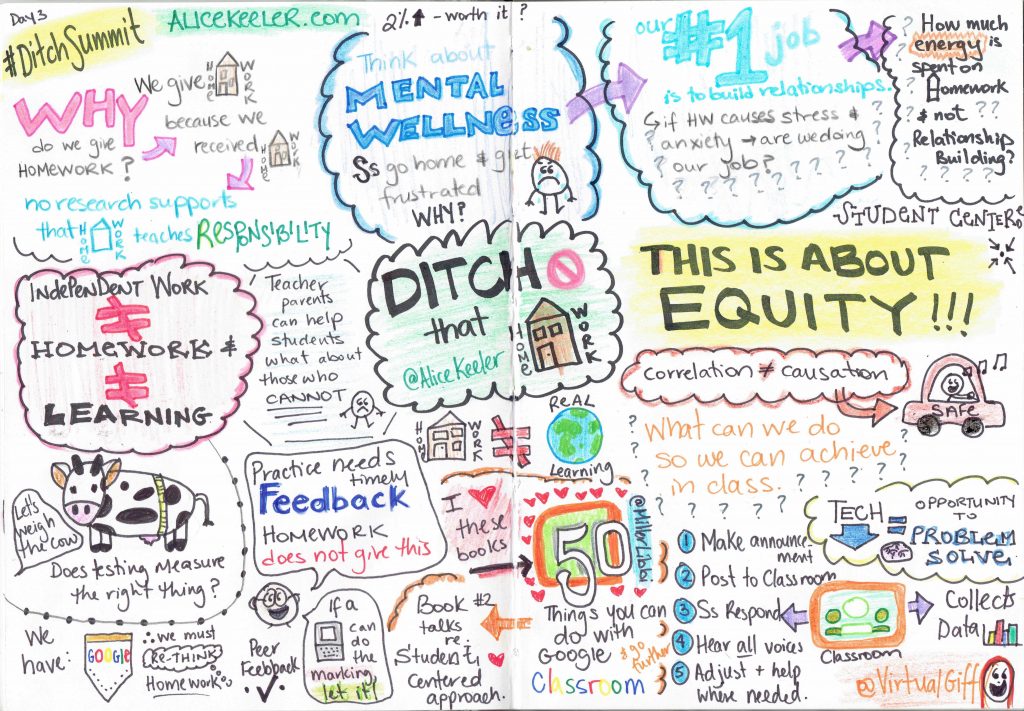 Day 3
#DitchSummit
ALICEKEELER.com
WHY
do we give
HOMEWORK?
We give HOME WORK
because we
received HOME WORK
no research supports
that HOME WORK teaches RESPONSIBILITY
2% ↑ - worth it?
Think about
MENTAL
WELLNESS
Ss go home & get
frustrated
WHY?
our
#1 job
is to build relationships.
↳ if HW causes stress &
anxiety → are we doing
our job?
? ? ? ? ? ? ? ?
How much
energy is
spent on
Homework
& not
Relationship
Building?
? ? ? ?
STUDENT CENTERED
INDEPENDENT WORK
≠
HOMEWORK &
≠
LEARNING
Teacher
parents
can help
students
what about
those who
CANNOT
DITCH
that
HOME WORK
@AliceKeeler
THIS IS ABOUT
EQUITY!!!
Correlation ≠ causation
SAFE
HOME WORK ≠
ReAL
Learning
What can we do
so we can achieve
in class.
? ? ? ? ? ? ?
Let's
weigh
the cow
Does testing measure
the right thing?
Practice needs
timely
Feedback
HOMEWORK
does not give this
I ♥
these
books
50
@MillerLibbi
Things you can
do with
Google
Classroom
& go
further
Book #2
talks
re.
Student
Centered
approach.
① Make announce-
ment
② Post to Classroom
③ Ss Respond
④ Hear all voices
⑤ Adjust + help
where needed.
TECH = OPPORTUNITY
TO
PROBLEM
SOLVE
Classroom
Collects
Data
We
have:
GOOGLE
∴ we must
RE-THINK
Homework
Peer
Feedback
✓
If a
can
do the
marking
let it!
@VirtualGiff